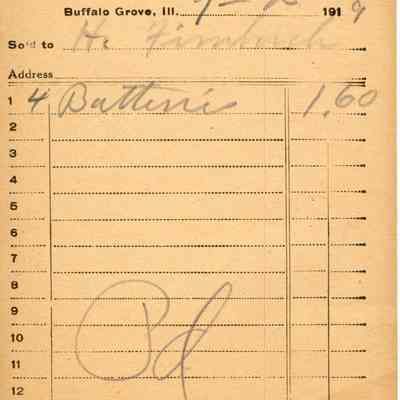 Buffalo Grove, Ill. 9-2 1919
Sold to H.
Address
1 4 Batterie 1.60
2
3
4
5
6
7
8
9
10
11
12
Pd